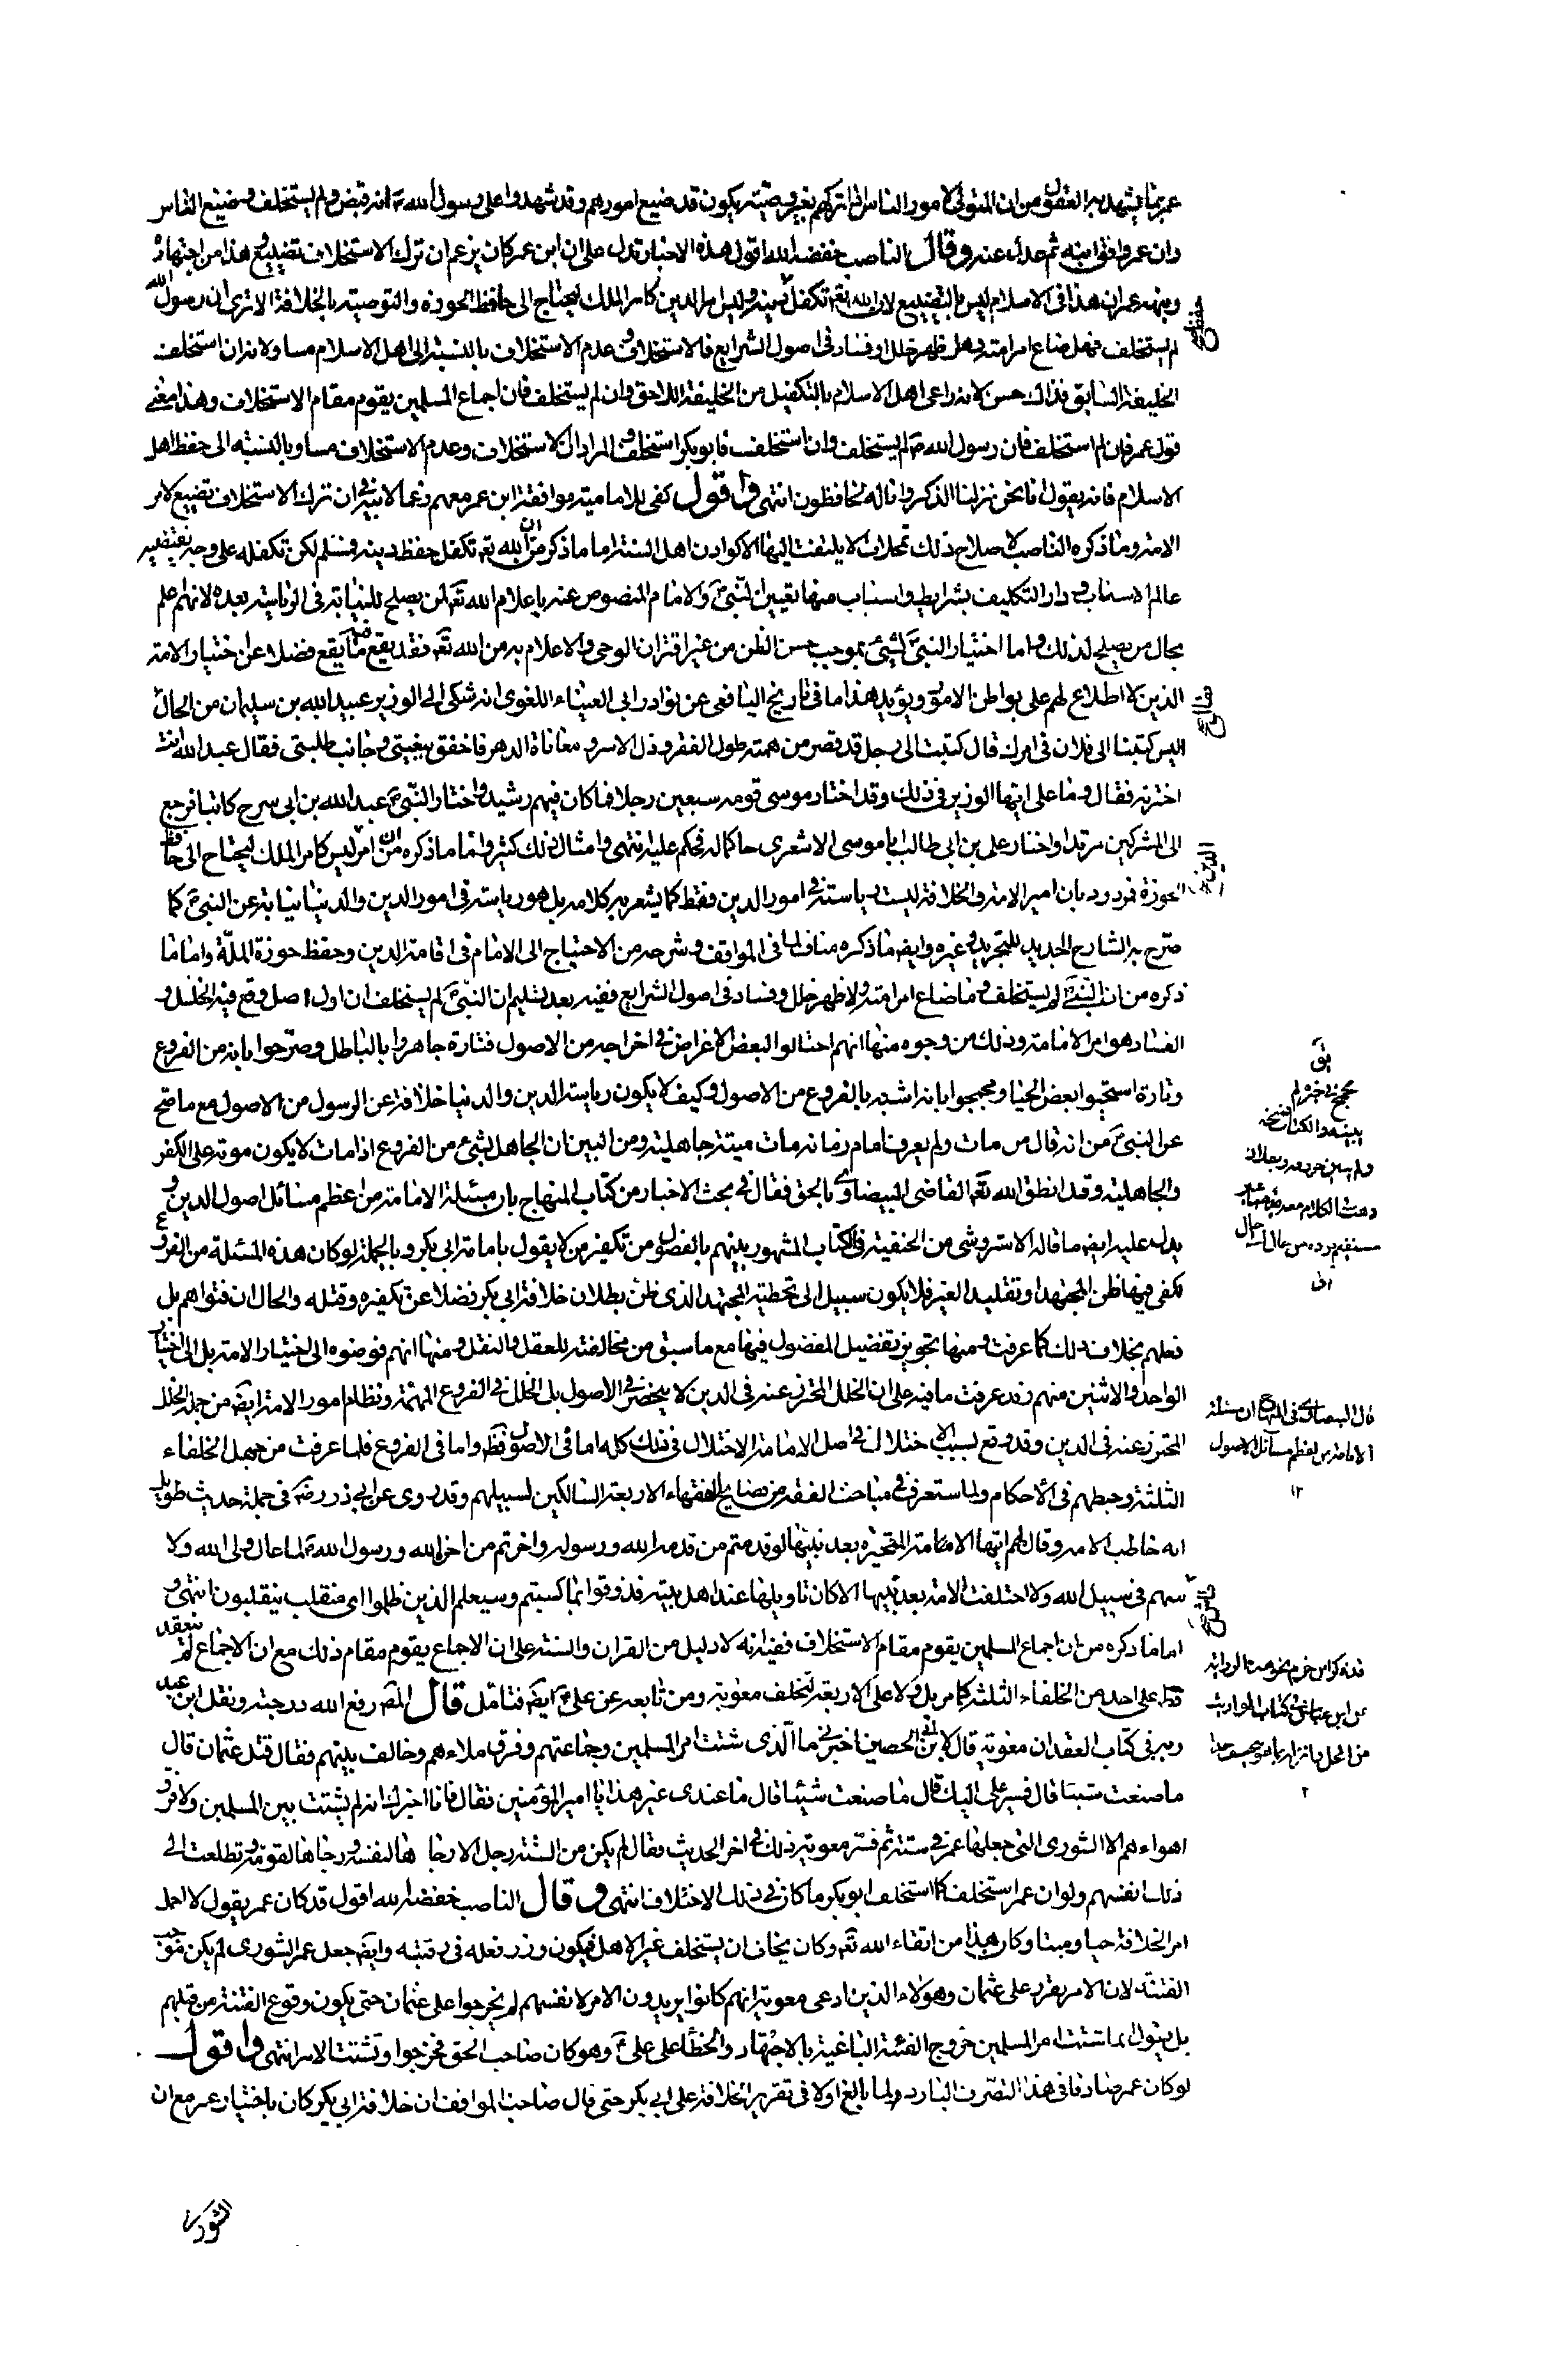 عمر بما يشهد به العقول من ان المتولى لامور الناس اذا تركهم بغير وصيته يكون قد ضيع امورهم وقد شهدوا على رسول الله ص انه قبض ولم يستخلف وضيع الناس
وان عمر وافق ابنه ثم عدل عنه وقال الناصب خفضه الله اقول هذه الاخبار تدل على ان ابن عمر كان يزعم ان ترك الاستخلاف تضييع وهذا من اجتهاده
ونبهه عمر ان هذا فى الاسلام ليس بالتضييع لان الله تعه تكفل دينه وليس امر الدين كامر الملك ليحتاج الى حافظ الحوزه والتوصيته بالخلافة الا ترى ان رسول الله
لم يستخلف فهل ضاع امر امته وهل ظهر خلل او فساد فى اصول الشرايع فالاستخلاف وعدم الاستخلاف بالنسبة الى اهل الاسلام مساو لانه ان استخلف
الخليفة السابق فذاك حسن لانه راعى اهل الاسلام بالتكفيل من الخليفة اللاحق وان لم يستخلف فان اجماع المسلمين يقوم مقام الاستخلاف وهذا معنى
قول عمر فان لم استخلف فان رسول الله ص لم يستخلف وان استخلفت فابوبكر استخلف والمراد ان الاستخلاف وعدم الاستخلاف مساو بالنسبه الى حفظ اهل
الاسلام فانه يقول انا نحن نزلنا الذكر وانا له لحافظون انتهى واقول كفى للامامية موافقة ابن عمر معهم رغما لابيه فى ان ترك الاستخلاف تضييع لامر
الامة وما ذكره الناصب لاصلاح ذلك تمحلات لا يلتفت اليها الا كوادن اهل السنة اما ما ذكره من ان الله تعه تكفل حفظ دينه فمسلم لكن تكفله على وجه يقتضيه
عالم الاسباب فى دار التكليف بشرايط واسباب منها تعيين النبى ص والامام المنصوص عنه باعلام الله تعه لمن يصلح للنيابة فى الرياسة بعده لانهم اعلم
بحال من يصلح لذلك واما اختيار النبى ص لشئ بموجب حسن الظن من غير اقتران الوحى والاعلام به من الله تعه فقد يقع فيه ما يقع فضلا عن اختيار الامة
الذين لا اطلاع لهم على بواطن الامور ويؤيد هذا ما فى تاريخ اليافعى عن نوادر ابى العيناء اللغوى انه شكى الى الوزير عبيد الله بن سليمان من الحال
اليس كتبنا الى فلان فى امرك قال كتبت الى رجل قد قصر من همته طول الفقر وذل الاسر ومعاناة الدهر فاخفق بغيتى وخابت طلبتى فقال عبيد الله انت
اخترته فقال وما على ايها الوزير فى ذلك وقد اختار موسى قومه سبعين رجلا فما كان فيهم رشيد واختار النبى ص عبد الله بن ابى سرح كاتبا فرجع
الى المشركين مرتدا واختار على بن ابى طالب ابا موسى الاشعرى حاكما له فحكم عليه انتهى وامثال ذلك كثير واما ما ذكره من ان امر الدين ليس كامر الملك ليحتاج الى حافظ
الحوزة فمردود بان امير الامة والخلافة ليست رياسة فى امور الدين فقط كما يشعر به كلامه بل هو رياسة فى امور الدين والدنيا نيابة عن النبى ص كما
صرح به الشارح الجديد للتجريد وغيره وايضه ما ذكره مناف لما فى المواقف وشرحه من الاحتياج الى الامام فى اقامة الدين وحفظ حوزة الملة واما ما
ذكره من ان النبى ص لم يستخلف وما ضاع امر امته ولا ظهر خلل وفساد فى اصول الشرايع ففيه بعد تسليم ان النبى ص لم يستخلف ان اول اصل وقع فيه الخلل و
الفساد هو امر الامامة وذلك من وجوه منها انهم احتالوا لبعض الاغراض فى اخراجه من الاصول فتارة جاهروا بالباطل وصرحوا بانه من الفروع
وتارة استحيوا بعض الحيا ومجمجوا بانه اشبه بالفروع من الاصول وكيف لا يكون رياسة الدين والدنيا خلافة عن الرسول من الاصول مع ما صح
عن النبى ص من انه قال من مات ولم يعرف امام زمانه مات ميتة جاهلية ومن البين ان الجاهل بشئ من الفروع اذا مات لا يكون موته على الكفر
والجاهلية وقد انطق الله تعه القاضى البيضاوى بالحق فقال فى مبحث الاخبار من كتاب المنهاج بان مسئلة الامامة من اعظم مسائل اصول الدين و
يدل عليه ايضه ما قاله الاستروشنى من الحنفية فى الكتاب المشهور بينهم بالفصول من تكفير من لا يقول بامامة ابى بكر وبالجملة لو كان هذه المسئلة من الفروع
تكفى فيها ظن المجتهد او تقليد الغير فلا يكون سبيل الى تخطئة المجتهد الذى ظن بطلان خلافة ابى بكر فضلا عن تكفيره وقتله والحال ان فتواهم بل
فعلهم بخلاف ذلك كما عرفت ومنها تجويز تفضيل المفضول فيها مع ما سبق من مخالفته للعقل والنقل ومنها انهم فوضوه الى اختيار الامة بل الى اختيار
الواحد والاثنين منهم وقد عرفت ما فيه على ان الخلل المحترز عنه فى الدين لا ينحصر فى الاصول بل الخلل فى الفروع المهمة ونظام امور الامة ايضه من جملة الخلل
المحترز عنه فى الدين وقد وقع بسبب الاختلال فى اصل الامامة الاختلال فى ذلك كله اما فى الاصول فظه واما فى الفروع فلما عرفت من جهل الخلفاء
الثلثة وخبطهم فى الاحكام ولما ستعرف فى مباحث الفقه من فضايح الفقهاء الاربعة السالكين لسبيلهم وقد روى عن ابى ذر رضه فى جملة حديث طويل
انه خاطب الامة وقال لهم ايتها الامة المتحيرة بعد نبيها لو قدمتم من قدمه الله ورسوله واخرتم من اخره الله ورسول الله لما عال ولى الله ولا
طاش سهم فى سبيل الله ولا اختلفت الامة بعد نبيها الا كان تاويلها عند اهل بيته فذوقوا بما كسبتم وسيعلم الذين ظلموا اى منقلب ينقلبون انتهى و
اما ما ذكره من ان اجماع المسلمين يقوم مقام الاستخلاف ففيه انه لا دليل من القران والسنة على ان الاجماع يقوم مقام ذلك مع ان الاجماع لم ينعقد
قط على احد من الخلفاء الثلثة كما مر بل ولا على الاربعة لتخلف معوية ومن تابعه عن على ع ايضه فتامل قال المصه رفع الله درجته ونقل ابن عبد
ربه فى كتاب العقد ان معوية قال لابن ابى الحصين اخبرنى ما الذى شتت امر المسلمين وجماعتهم وفرق ملاءهم وخالف بينهم فقال قتل عثمان قال
ما صنعت شيئا قال فسير على اليك قال ما صنعت شيئا قال ما عندى غير هذا يا امير المؤمنين فقال فانا اخبرك انه لم يشتت بين المسلمين ولا فرق
اهواءهم الا الشورى التى جعلها عمر فى ستة ثم فسر معوية ذلك فى اخر الحديث فقال لم يكن من الستة رجل الا رجاها لنفسه ورجاها لقومه وتطلعت الى
ذلك انفسهم ولو ان عمر استخلف كما استخلف ابوبكر ما كان فى ذلك الاختلاف انتهى وقال الناصب خفضه الله اقول قد كان عمر يقول لا احمل
امر الخلافة حيا وميتا وكان هذا من اتقاء الله تعه وكان يخاف ان يستخلف غير الاهل فيكون وزر فعله فى رقبته وايضه جعل عمر الشورى لم يكن موجب
الفتنة لان الامر تقرر على عثمان وهولاء الذين ادعى معوية انهم كانوا يريدون الامر لانفسهم لم يخرجوا على عثمان حتى يكون وقوع الفتنة من قبلهم
بل نقول انما تشتت امر المسلمين خروج الفئة الباغية بالاجتهاد والخطأ على على ع وهو كان صاحب الحق فخرجوا وتشتت الامر انتهى واقول
لو كان عمر صادقا فى هذا التصرف البارد ولما بالغ اولا فى تقرير الخلافة على ابى بكر حتى قال صاحب المواقف ان خلافة ابى بكر كان باختيار عمر مع ان
الشورى
حفظ
قال البيضاوى فى المنهاج ان مسئلة
الامامة من اعظم مسائل الاصول
١٢